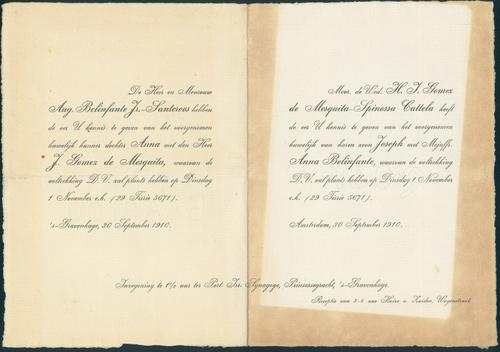 De Heer en Mevrouw
Aug. Belinfante Jr.-Santcroos hebben
de eer U kennis te geven van het voorgenomen
huwelijk hunner dochter Anna met den Heer
J. Gomez de Mesquita, waarvan de
voltrekking D.V. zal plaats hebben op Dinsdag
1 November e.k. (29 Tisrie 5671).
's-Gravenhage, 30 September 1910.
Mevr. de Wed. H. J. Gomez
de Mesquita-Spinossa Cattela heeft
de eer U kennis te geven van het voorgenomen
huwelijk van haren zoon Joseph met Mejuffr.
Anna Belinfante, waarvan de voltrekking
D.V. zal plaats hebben op Dinsdag 1 November
e.k. (29 Tisrie 5671).
Amsterdam, 30 September 1910.
Inzegening te 1½ uur ter Port. Isr. Synagoge, Prinsessegracht, 's-Gravenhage.
Receptie van 3-5 uur Huize v. Zuiden, Wagenstraat